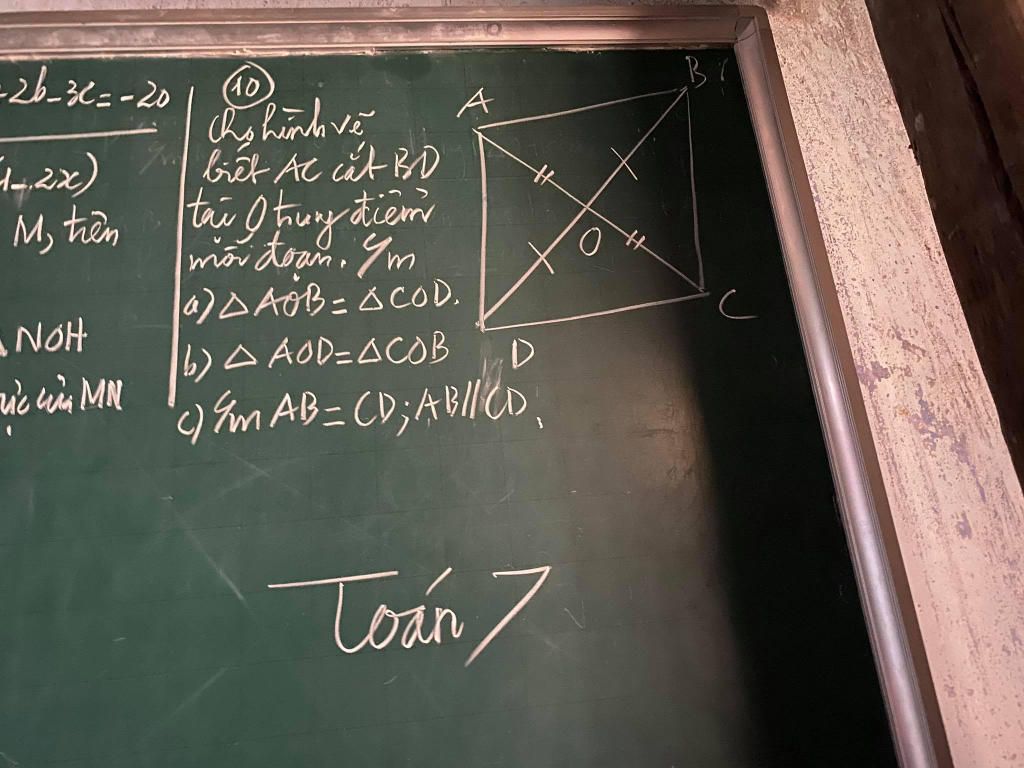 2b-3c=-20
-2x)
M, trên
NOH
của MN
10
Cho hình vẽ
biết AC cắt BD
tại O trung điểm
mỗi đoạn. Cm
a) △ AOB = △ COD.
b) △ AOD = △ COB
c) Cm AB = CD; AB // CD.
A
B
O
C
D
Toán 7